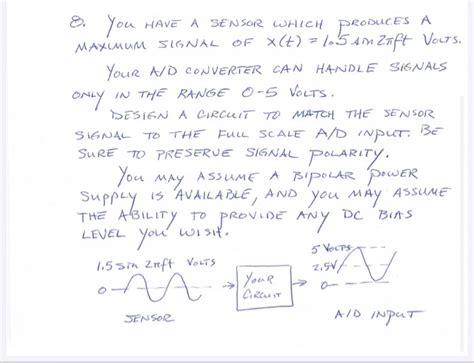 8. YOU HAVE A SENSOR WHICH PRODUCES A
MAXIMUM SIGNAL OF X(t) = 1.5 sin 2πft VOLTS.
YOUR A/D CONVERTER CAN HANDLE SIGNALS
ONLY IN THE RANGE 0-5 VOLTS.
DESIGN A CIRCUIT TO MATCH THE SENSOR
SIGNAL TO THE FULL SCALE A/D INPUT. BE
SURE TO PRESERVE SIGNAL POLARITY.
YOU MAY ASSUME A BIPOLAR POWER
SUPPLY IS AVAILABLE, AND YOU MAY ASSUME
THE ABILITY TO PROVIDE ANY DC BIAS
LEVEL YOU WISH.
1.5 sin 2πft VOLTS
0
SENSOR
YOUR
CIRCUIT
5 VOLTS
2.5V
0
A/D INPUT